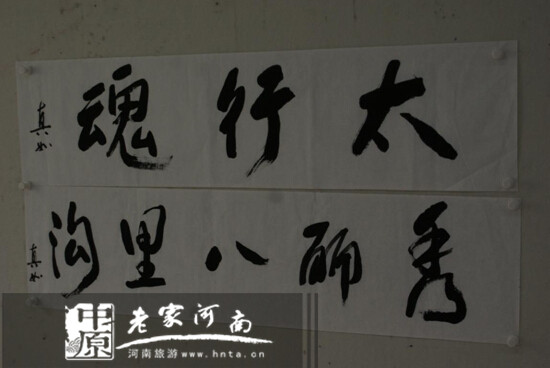 太行魂
真如
秀丽八里沟
真如
中原
老家河南
河南旅游 www.hnta.cn